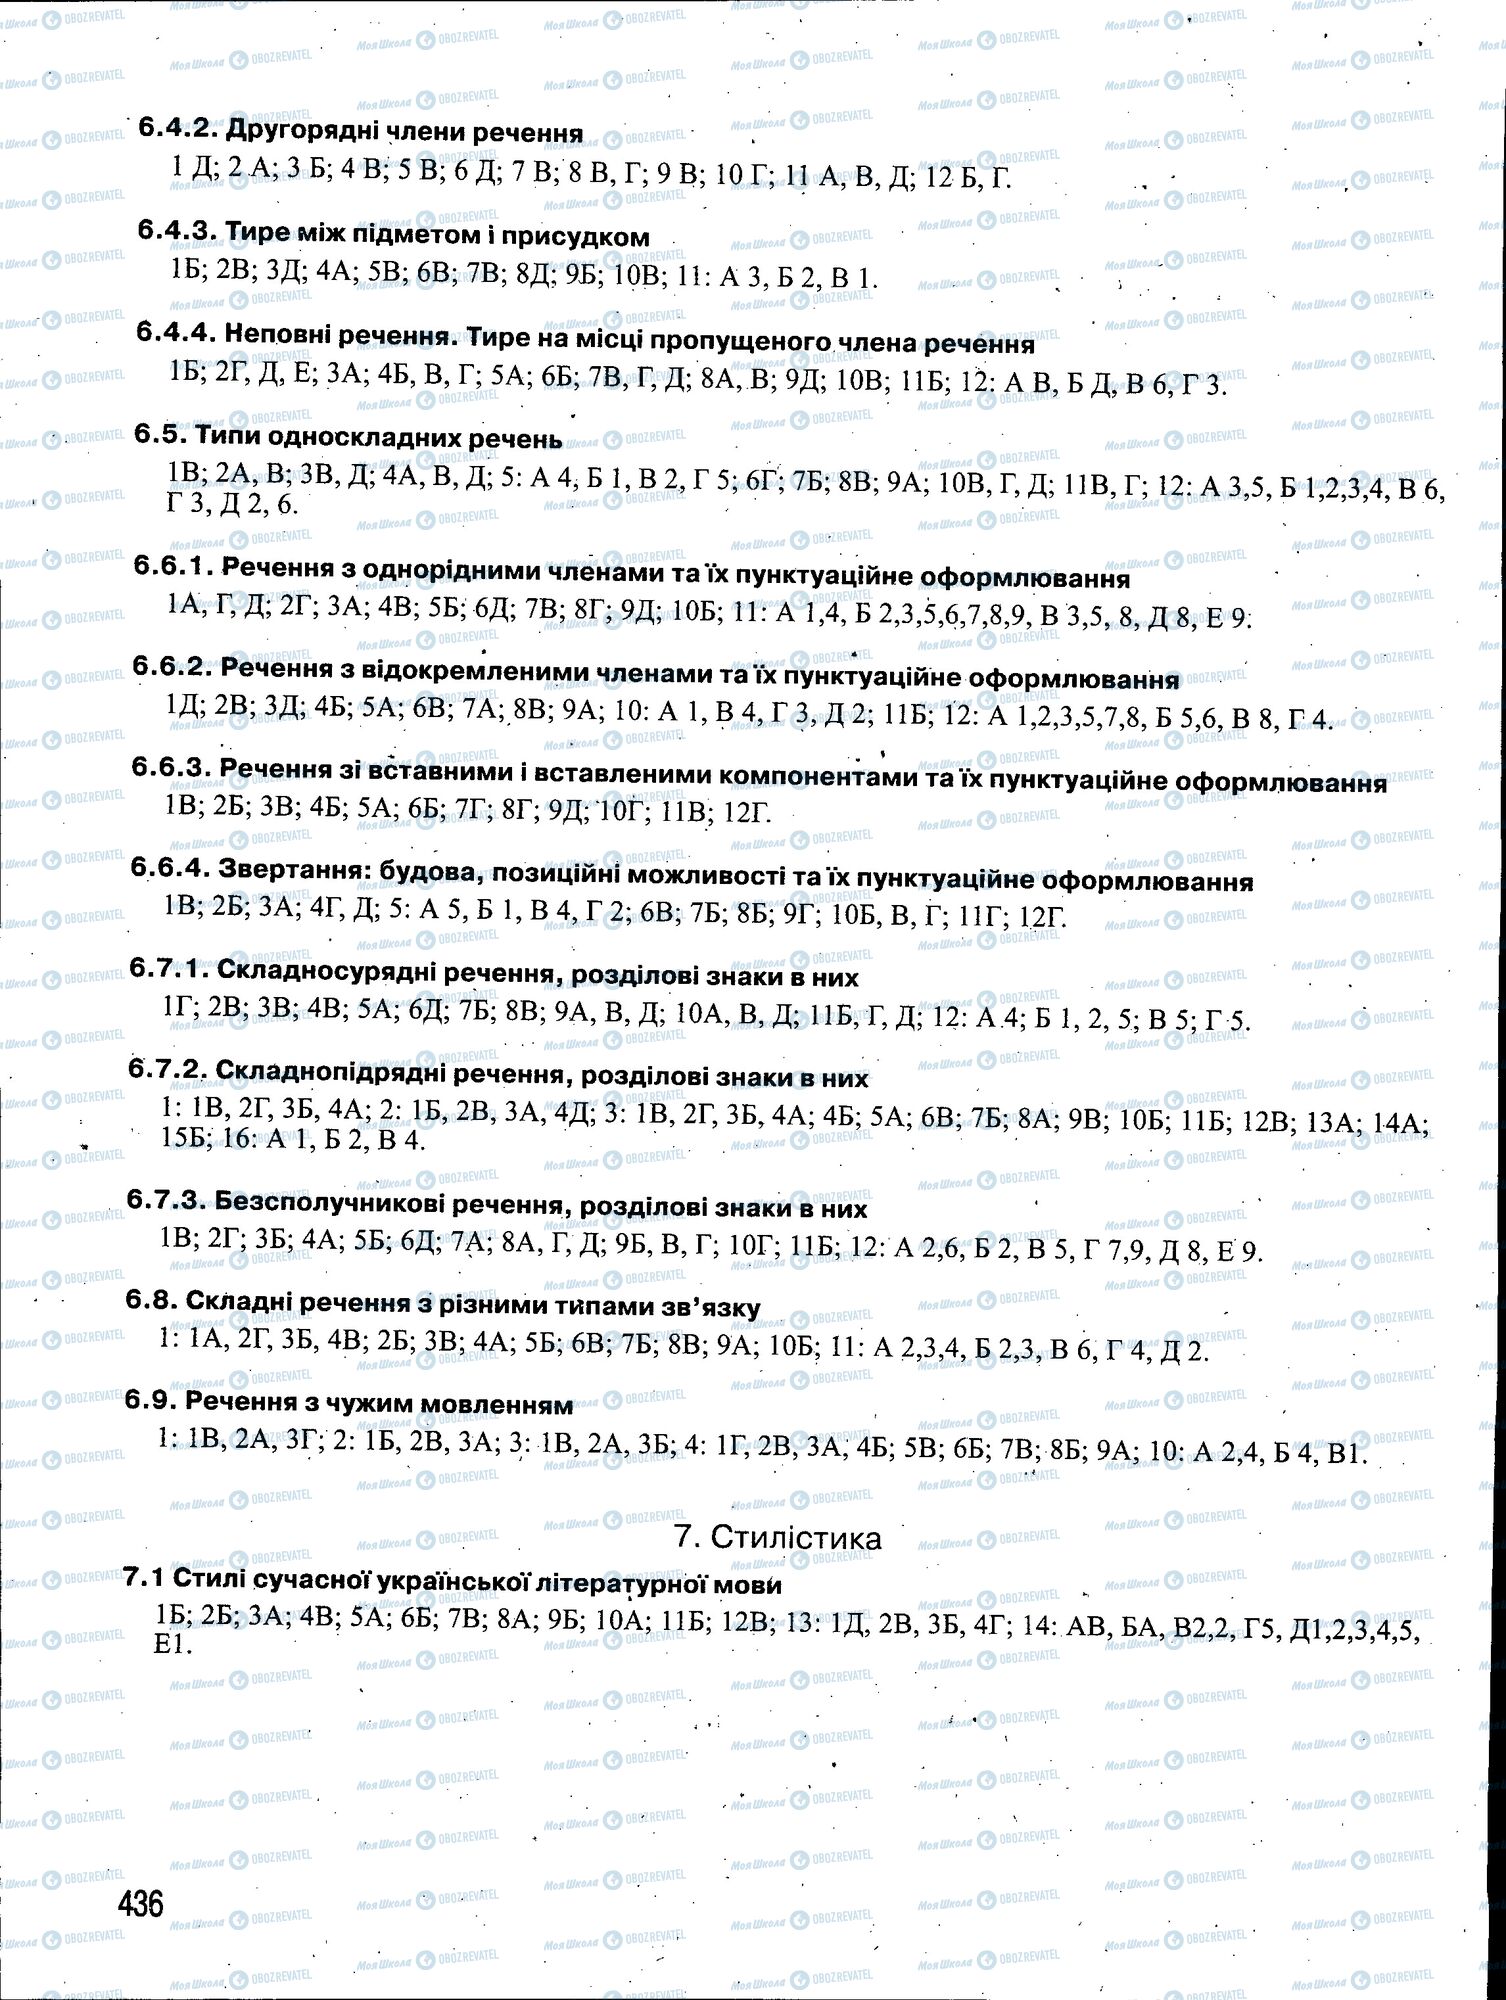 6.4.2. Другорядні члени речення
1 Д; 2 А; 3 Б; 4 В; 5 В; 6 Д; 7 В; 8 В, Г; 9 В; 10 Г; 11 А, В, Д; 12 Б, Г.
6.4.3. Тире між підметом і присудком
1Б; 2В; 3Д; 4А; 5В; 6В; 7В; 8Д; 9Б; 10В; 11: А 3, Б 2, В 1.
6.4.4. Неповні речення. Тире на місці пропущеного члена речення
1Б; 2Г, Д, Е; 3А; 4Б, В, Г; 5А; 6Б; 7В, Г, Д; 8А, В; 9Д; 10В; 11Б; 12: А В, Б Д, В 6, Г 3.
6.5. Типи односкладних речень
1В; 2А, В; 3В, Д; 4А, В, Д; 5: А 4, Б 1, В 2, Г 5; 6Г; 7Б; 8В; 9А; 10В, Г, Д; 11В, Г; 12: А 3,5, Б 1,2,3,4, В 6,
Г 3, Д 2, 6.
6.6.1. Речення з однорідними членами та їх пунктуаційне оформлювання
1А, Г, Д; 2Г; 3А; 4В; 5Б; 6Д; 7В; 8Г; 9Д; 10Б; 11: А 1,4, Б 2,3,5,6,7,8,9, В 3,5, 8, Д 8, Е 9.
6.6.2. Речення з відокремленими членами та їх пунктуаційне оформлювання
1Д; 2В; 3Д; 4Б; 5А; 6В; 7А; 8В; 9А; 10: А 1, В 4, Г 3, Д 2; 11Б; 12: А 1,2,3,5,7,8, Б 5,6, В 8, Г 4.
6.6.3. Речення зі вставними і вставленими компонентами та їх пунктуаційне оформлювання
1В; 2Б; 3В; 4Б; 5А; 6Б; 7Г; 8Г; 9Д; 10Г; 11В; 12Г.
6.6.4. Звертання: будова, позиційні можливості та їх пунктуаційне оформлювання
1В; 2Б; 3А; 4Г, Д; 5: А 5, Б 1, В 4, Г 2; 6В; 7Б; 8Б; 9Г; 10Б, В, Г; 11Г; 12Г.
6.7.1. Складносурядні речення, розділові знаки в них
1Г; 2В; 3В; 4В; 5А; 6Д; 7Б; 8В; 9А, В, Д; 10А, В, Д; 11Б, Г, Д; 12: А 4; Б 1, 2, 5; В 5; Г 5.
6.7.2. Складнопідрядні речення, розділові знаки в них
1: 1В, 2Г, 3Б, 4А; 2: 1Б, 2В, 3А, 4Д; 3: 1В, 2Г, 3Б, 4А; 4Б; 5А; 6В; 7Б; 8А; 9В; 10Б; 11Б; 12В; 13А; 14А;
15Б; 16: А 1, Б 2, В 4.
6.7.3. Безсполучникові речення, розділові знаки в них
1В; 2Г; 3Б; 4А; 5Б; 6Д; 7А; 8А, Г, Д; 9Б, В, Г; 10Г; 11Б; 12: А 2,6, Б 2, В 5, Г 7,9, Д 8, Е 9.
6.8. Складні речення з різними типами зв’язку
1: 1А, 2Г, 3Б, 4В; 2Б; 3В; 4А; 5Б; 6В; 7Б; 8В; 9А; 10Б; 11: А 2,3,4, Б 2,3, В 6, Г 4, Д 2.
6.9. Речення з чужим мовленням
1: 1В, 2А, 3Г; 2: 1Б, 2В, 3А; 3: 1В, 2А, 3Б; 4: 1Г, 2В, 3А, 4Б; 5В; 6Б; 7В; 8Б; 9А; 10: А 2,4, Б 4, В1.
7. Стилістика
7.1 Стилі сучасної української літературної мови
1Б; 2Б; 3А; 4В; 5А; 6Б; 7В; 8А; 9Б; 10А; 11Б; 12В; 13: 1Д, 2В, 3Б, 4Г; 14: АВ, БА, В2,2, Г5, Д1,2,3,4,5,
Е1.
436